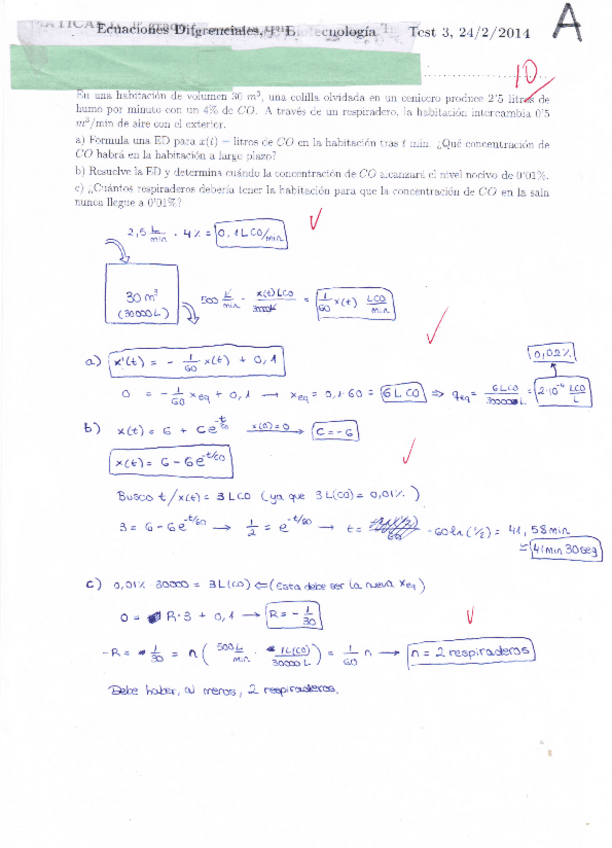 Ecuaciones Diferenciales, 1º Biotecnología Test 3, 24/2/2014 A
10
En una habitación de volumen 30 m³, una colilla olvidada en un cenicero produce 2'5 litros de
humo por minuto con un 4% de CO. A través de un respiradero, la habitación intercambia 0'5
m³/min de aire con el exterior.
a) Formula una ED para x(t) = litros de CO en la habitación tras t min. ¿Qué concentración de
CO habrá en la habitación a largo plazo?
b) Resuelve la ED y determina cuándo la concentración de CO alcanzará el nivel nocivo de 0'01%.
c) ¿Cuántos respiraderos debería tener la habitación para que la concentración de CO en la sala
nunca llegue a 0'01%?
2,5 L/min · 4% = 0,1 L CO/min
30 m³
(30000L)
500 L/min · x(t) L CO/30000 L = 1/60 x(t) LCO/min
a) x'(t) = - 1/60 x(t) + 0,1
0,02%
0 = - 1/60 xeq + 0,1 → xeq = 0,1·60 = 6 L CO ⇒ qeq = 6 L CO/30000 L = 2·10⁻⁴ LCO/L
b) x(t) = 6 + Ce^-t/60 x(0)=0 → C = -6
x(t) = 6 - 6e^-t/60
Busco t / x(t) = 3 L CO (ya que 3 L(CO) = 0,01%)
3 = 6 - 6e^-t/60 → 1/2 = e^-t/60 → t = -60 ln(1/2) = 41,58 min
≈ 41 min 30 seg
c) 0,01% · 30000 = 3 L(CO) ⇐ (Esta debe ser la nueva xeq)
0 = R·3 + 0,1 → R = - 1/30
-R = 1/30 = n ( 500 L/min · 1 L(CO)/30000 L ) = 1/60 n → n = 2 respiraderos
Debe haber, al menos, 2 respiraderos.